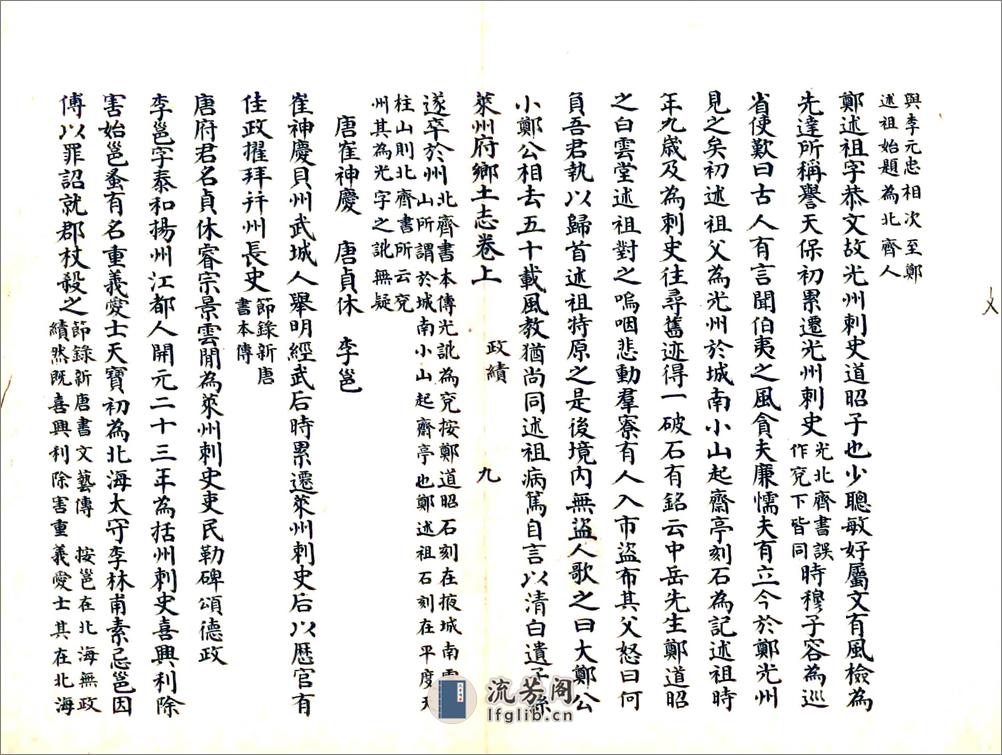 與李元忠相次至鄭
述祖始題為北齊人
鄭述祖字恭文故光州刺史道昭子也少聰敏好屬文有風檢為
先達所稱譽天保初累遷光州刺史光北齊書誤
作兗下皆同時穆子容為巡
省使歎曰古人有言聞伯夷之風貪夫廉懦夫有立今於鄭光州
見之矣初述祖父為光州於城南小山起齋亭刻石為記述祖時
年九歲及為刺史往尋舊迹得一破石有銘云中岳先生鄭道昭
之白雲堂述祖對之嗚咽悲動羣寮有人入市盜布其父怒曰何
負吾君執以歸首述祖特原之是後境內無盜人歌之曰大鄭公
小鄭公相去五十載風教猶尚同述祖病篤自言以清白遺子孫
萊州府鄉土志卷上 政績 九
遂卒於州北齊書本傳光訛為兗按鄭道昭石刻在掖城南雲
山所謂於城南小山起齋亭也鄭述祖石刻在平度天
柱山則北齊書所云兗
州其為光字之訛無疑
唐崔神慶 唐貞休 李邕
崔神慶貝州武城人舉明經武后時累遷萊州刺史后以歷官有
佳政擢拜幷州長史節錄新唐
書本傳
唐府君名貞休睿宗景雲閒為萊州刺史吏民勒碑頌德政
李邕字泰和揚州江都人開元二十三年為括州刺史喜興利除
害始邕蚤有名重義愛士天寶初為北海太守李林甫素忌邕因
傅以罪詔就郡杖殺之節錄新唐書文藝傳 按邕在北海無政
績然既喜興利除害重義愛士其在北海
流芳阁
lfglib.cn